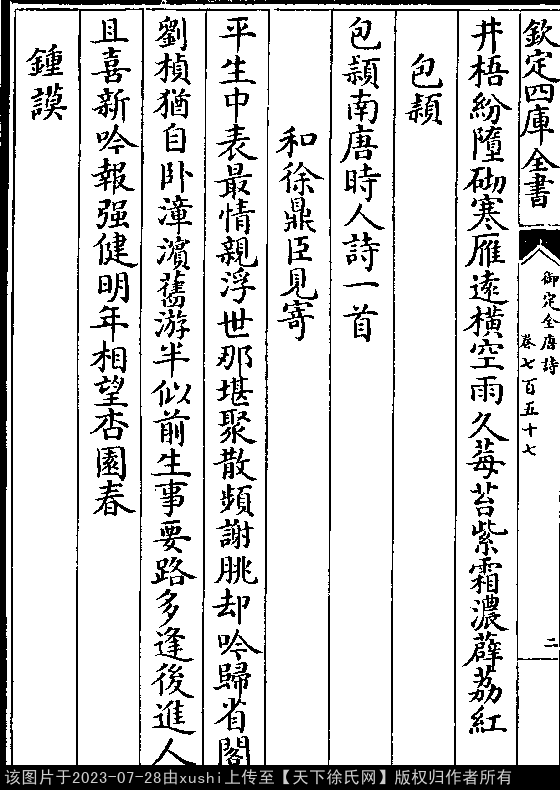 欽定四庫全書
御定全唐詩
卷七百五十七
二
井梧紛墮砌寒雁遠橫空雨久莓苔紫霜濃薜荔紅
包頴
包頴南唐時人詩一首
和徐鼎臣見寄
平生中表最情親浮世那堪聚散頻謝朓却吟歸省閣
劉楨猶自卧漳濱舊游半似前生事要路多逢後進人
且喜新吟報强健明年相望杏園春
鍾謨
该图片于2023-07-28由xushi上传至【天下徐氏网】版权归作者所有